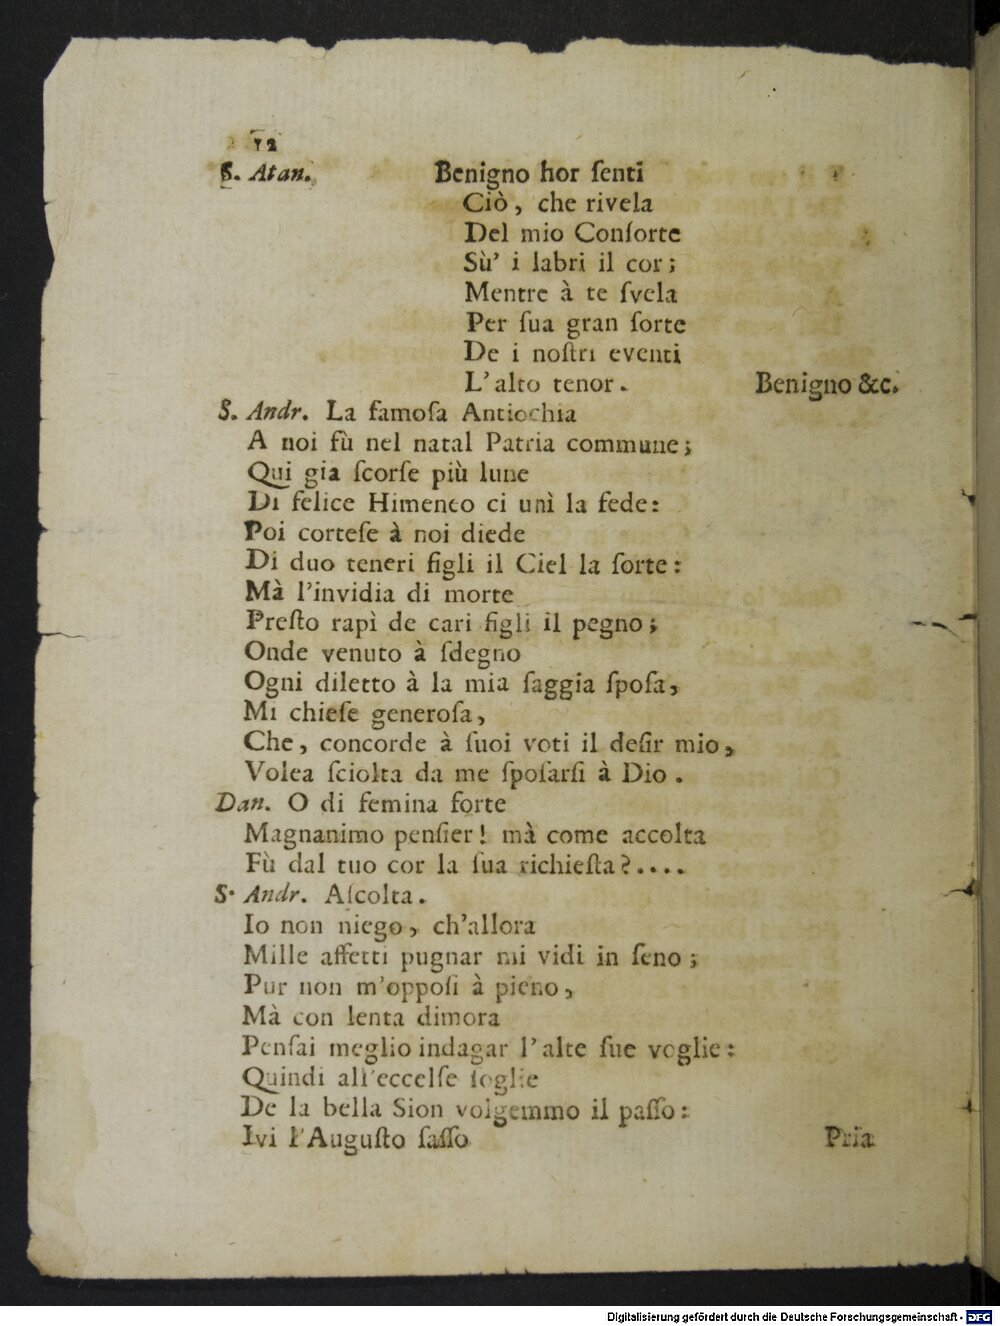 12
S. Atan. Benigno hor ſenti
Ciò, che rivela
Del mio Conſorte
Sù' i labri il cor;
Mentre à te ſvela
Per ſua gran ſorte
De i noſtri eventi
L'alto tenor. Benigno &c.
S. Andr. La famoſa Antiochia
A noi fù nel natal Patria commune;
Qui gia ſcorſe più lune
Di felice Himeneo ci unì la fede:
Poi corteſe à noi diede
Di duo teneri figli il Ciel la ſorte:
Mà l'invidia di morte
Preſto rapì de cari figli il pegno;
Onde venuto à ſdegno
Ogni diletto à la mia ſaggia ſpoſa,
Mi chieſe generoſa,
Che, concorde à ſuoi voti il deſir mio,
Volea ſciolta da me ſpoſarſi à Dio.
Dan. O di femina forte
Magnanimo penſier! mà come accolta
Fù dal tuo cor la ſua richieſta?....
S. Andr. Aſcolta.
Io non niego, ch'allora
Mille affetti pugnar mi vidi in ſeno;
Pur non m'oppoſi à pieno,
Mà con lenta dimora
Penſai meglio indagar l'alte ſue voglie:
Quindi all'eccelſe ſoglie
De la bella Sion volgemmo il paſſo:
Ivi l'Auguſto ſaſſo
Pria
Digitalisierung gefördert durch die Deutsche Forschungsgemeinschaft - DFG